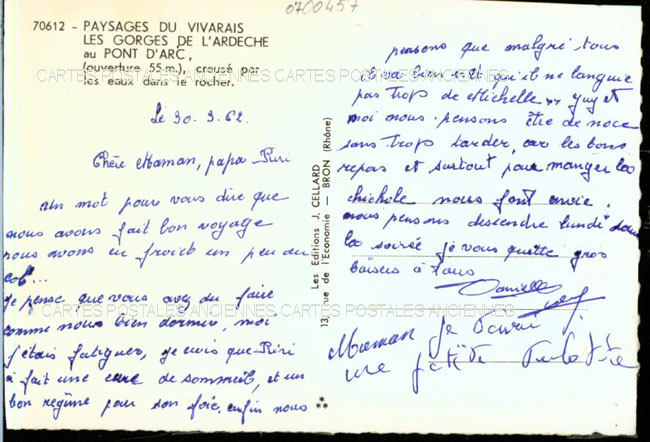 0700457
70612 - PAYSAGES DU VIVARAIS
LES GORGES DE L'ARDECHE
au PONT D'ARC,
(ouverture 55 m.), creusé par
les eaux dans le rocher.
CARTES POSTALES ANCIENNES CARTES POSTALES ANCIENNES
Le 30-3-62
Chère Maman, papa - Riri
un mot pour vous dire que
nous avons fait bon voyage
nous avons eu froid un peu au
col...
je pense que vous avez du faire
comme nous bien dormir, moi
j'étais fatiguer, je crois que Riri
à fait une cure de sommeil, et un
bon regime pour son foie, enfin nous
Les Editions J. CELLARD
13, rue de l'Economie — BRON (Rhône)
pensons que malgré tous
va bien et qu'il ne languie
pas trop de Michelle. guy et
moi nous pensons être de noce
sans trop tarder, car les bons
repas et surtout pour manger la
nous font envie.
nous pensons descendre lundi dans
la soirée je vous quitte gros
baisers a tous
Danielle
CARTES POSTALES ANCIENNES CARTES POSTALES ANCIENNES
Maman je
une